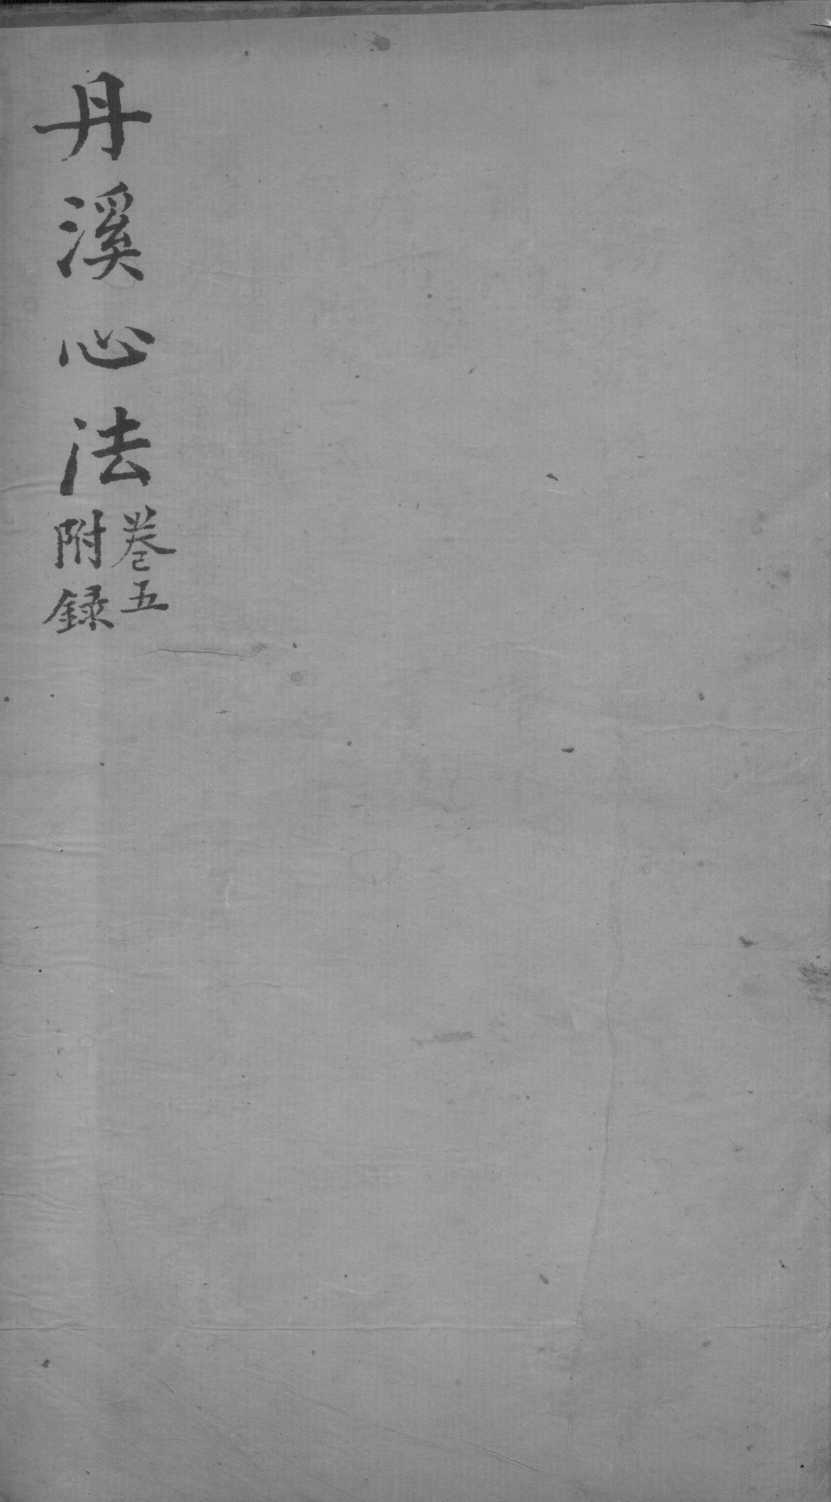 丹溪心法
卷五
附録